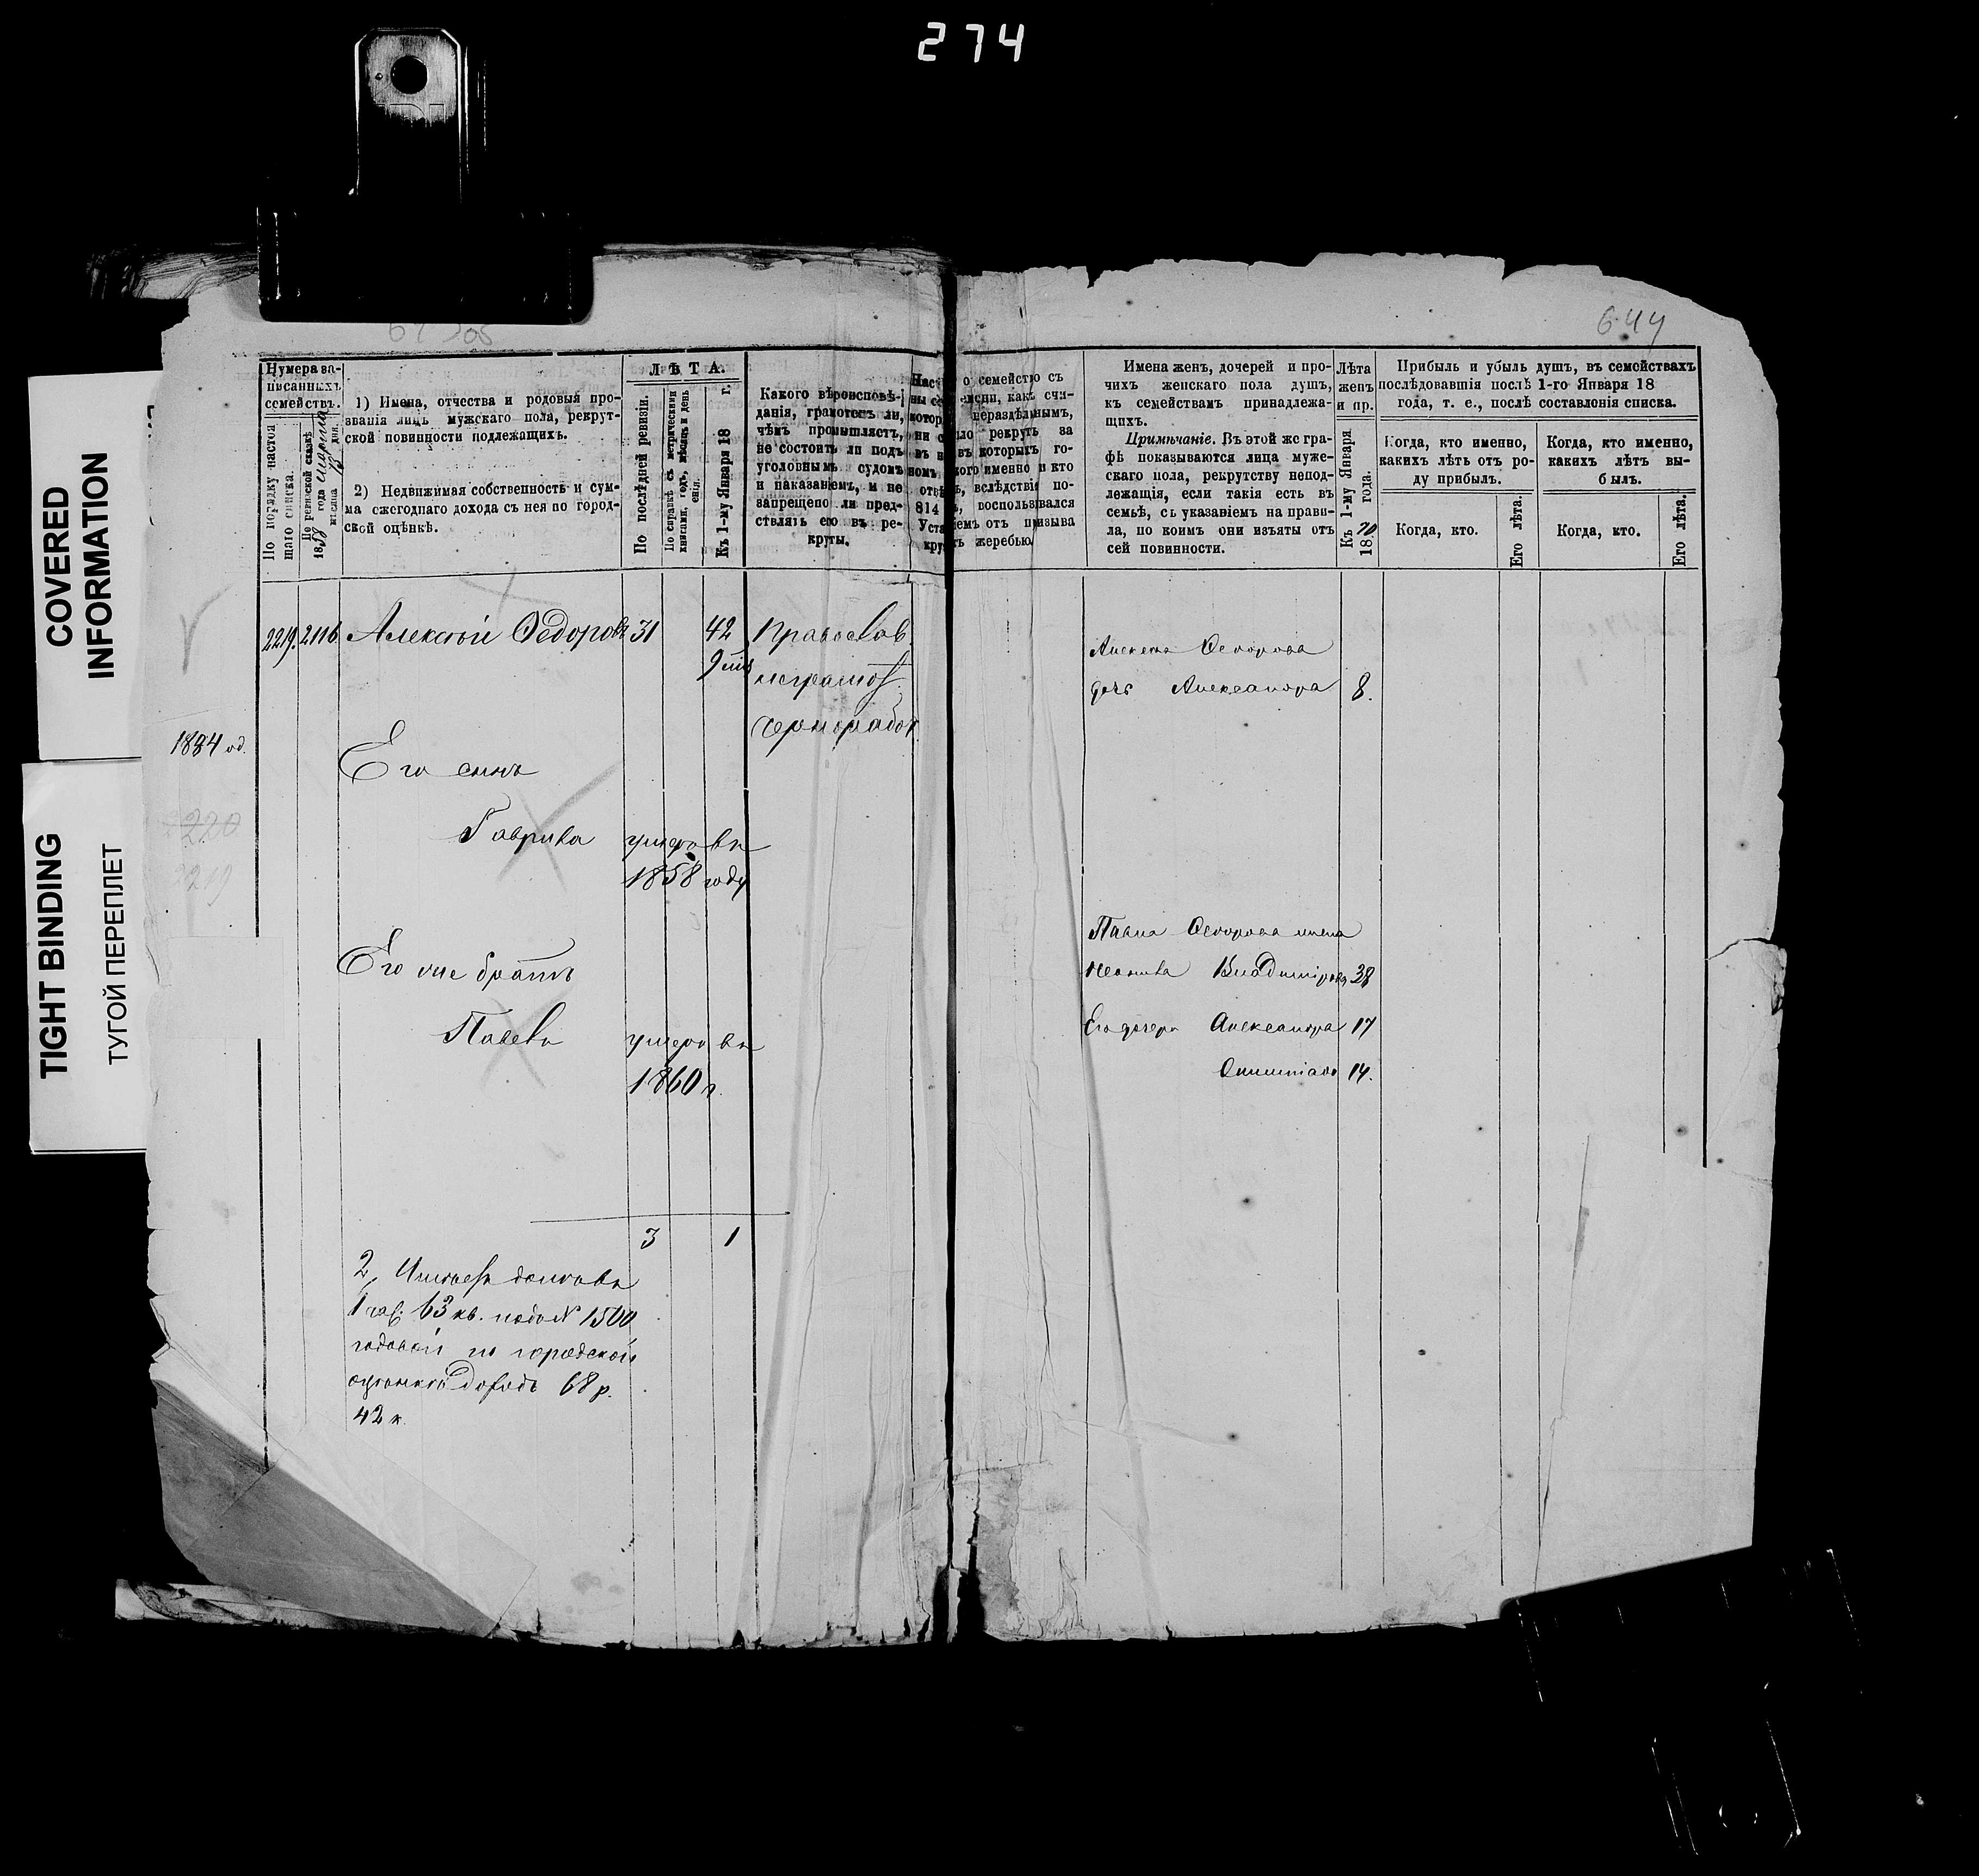 274
COVERED
INFORMATION
TIGHT BINDING
ТУГОЙ ПЕРЕПЛЕТ
644
Нумера за-
писанныхъ
семействъ.
По порядку настоя
щаго списка.
По ревизской сказкѣ
18 года
мѣсяца дня.
1) Имена, отчества и родовыя про-
званія лицъ мужскаго пола, рекрут-
ской повинности подлежащихъ.
2) Недвижимая собственность и сум-
ма ежегоднаго дохода съ нея по город-
ской оцѣнкѣ.
ЛѢТА.
По послѣдней ревизіи.
По справкѣ съ метрическими
книгами, годъ, мѣсяцъ и день
Къ 1-му Января 18 г.
Какого вѣроисповѣ-
данія, грамотенъ ли,
чѣмъ промышляетъ,
не состоитъ ли подъ
уголовнымъ судомъ
и наказаніемъ, и не
запрещено ли пред-
ствлять его въ ре-
круты.
о семейство съ
какъ счи-
нераздѣльнымъ,
рекрутъ за
въ которыхъ го-
именно и кто
вслѣдствіе по-
814 воспользовался
отъ призыва
жеребью.
Имена женъ, дочерей и про-
чихъ женскаго пола душъ,
къ семействамъ принадлежа-
щихъ.
Примѣчаніе. Въ этой же гра-
фѣ показываются лица муже-
скаго пола, рекрутству непод-
лежащія, если такія есть въ
семьѣ, съ указаніемъ на прави-
ла, по коимъ они изъяты отъ
сей повинности.
Лѣта
женъ
и пр.
Къ 1-му Января
1870 года.
Прибыль и убыль душъ, въ семействахъ
послѣдовавшія послѣ 1-го Января 18
года, т. е., послѣ составленія списка.
Когда, кто именно,
какихъ лѣтъ отъ ро-
ду прибылъ.
Когда, кто именно,
какихъ лѣтъ вы-
былъ.
Когда, кто.
Его лѣта.
Когда, кто.
Его лѣта.
2219. 2116 Алексѣй Ѳедоровъ 31 42 Православ.
неграмот.
чернорабоч.
Алексѣя Ѳедорова
дочь Александра 8.
Его сынъ
Гаврила умеръ въ
1858 году
Его же братъ
Павелъ умеръ въ
1860 г.
Павла Ѳедорова жена
Владимірова 38
Его дочери Александра 17
14.
3 1
2, Имѣетъ домъ въ
1 част. 63 кв. подъ № 1500
годовой по городской
оцѣнкѣ доходъ 68 р.
42 к.
2220
2219